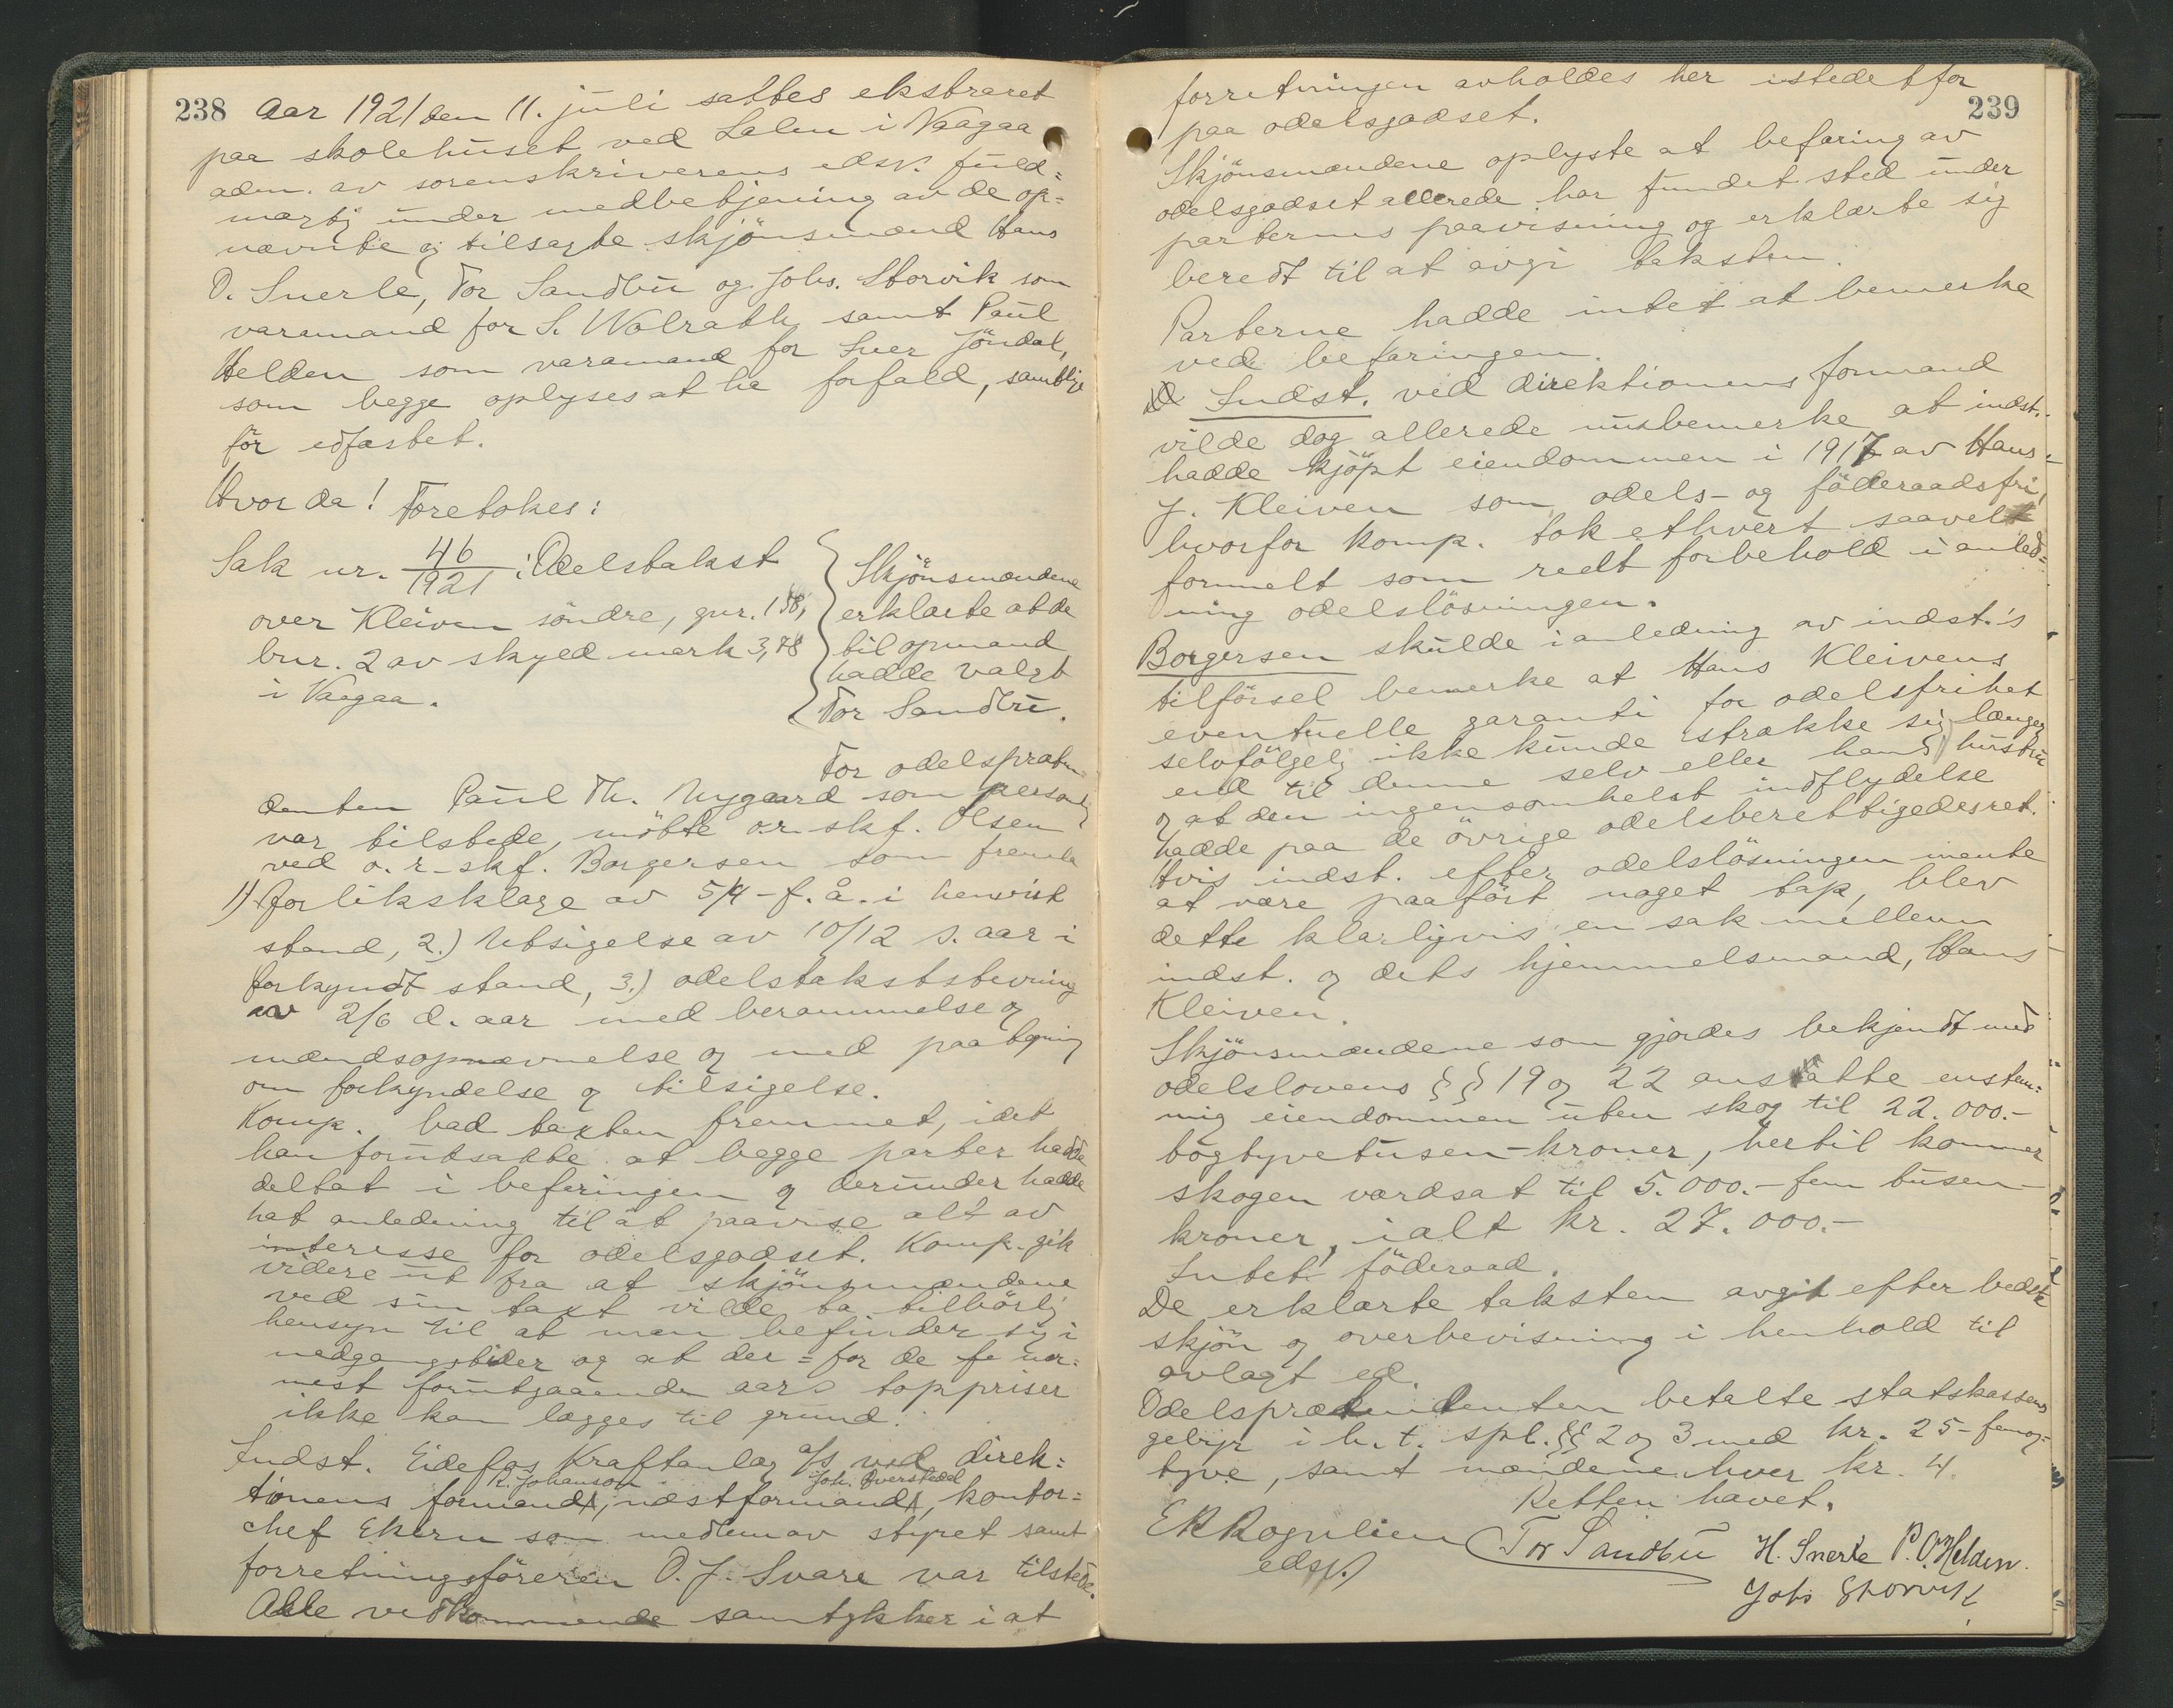 238 Aar 1921 den 11. juli sattes ekstraret
paa skolehuset ved Lalm i Vaagaa
adm. av sorenskriverens edsv. fuld=
mægtig under medbetjening av de op=
nævnte og tilsagte skjönsmænd Hans
O. Snerle, Tor Sandbu og Johs. Storvik som
varamand for S. Wolrath samt Paul
Helden som varamand for Iver Jöndal,
som begge oplyses at ha forfald, samtlige
för edfæstet.
Hvor da! Foretokes:
Sak nr. 46/1921: Odelstakst
over Kleiven söndre, gnr. 158,
bnr. 2 av skyld mark 3,78
i Vaagaa.
Skjönsmændene
erklærte at de
til opmand
hadde valgt
Tor Sandbu.
For odelspræten=
denten Paul Th. Nygaard som personlig
var tilstede, mötte o.r. skf. Olsen
ved o.r-skf. Borgersen som fremla
1) Forliksklage av 5/4-f.å. i henvist
stand, 2.) Utsigelse av 10/12 s. aar i
forkyndt stand, 3.) odelstakstsbevning
av 2/6 d. aar med berammelse og
mændsopnævnelse og med paategning
om forkyndelse og tilsigelse.
Komp. bad taxten fremmet, idet
han forutsatte at begge parter hadde
deltat i befaringen og derunder hadde
hat anledning til at paavise alt av
interesse for odelsgodset. Komp. gik
videre ut fra at skjönsmændene
ved sin taxt vilde ta tilbörlig
hensyn til at man befinder sig i
nedgangstider og at der = for de fe nær=
mest forutgaaende aars toppriser
ikke kan lægges til grund.
Indst. Eidefos Kraftanlæg a/s ved direk=
R. Johanson Joh. Øverstedal
tionens formand, næstformand, kontor=
chef Ekern som medlem av styret samt
forretningsföreren O. J. Svare var tilstede.
Alle vedkommende samtykker i at
239
forretningen avholdes her istedetfor
paa odelsgodset.
Skjönsmændene oplyste at befaring av
odelsgodset allerede har fundet sted under
parternes paavisning og erklærte sig
beredt til at avgi taksten.
Parterne hadde intet at bemerke
ved befaringen.
Indst. ved direktionens formand
vilde dog allerede nu bemerke at indst.
hadde kjöpt eiendommen i 1917 av Hans
J. Kleiven som odels- og föderaadsfri,
hvorfor komp. tok ethvert saavel
formelt som reelt forbehold i anled=
ning odelslösningen.
Borgersen skulde i anledning av indst.'s
tilförsel bemerke at Hans Kleivens
eventuelle garanti for odelsfrihet
selvfölgelig ikke kunde strække sig længer
end til denne selv eller hans hustru
og at den ingensomhelst indflydelse
hadde paa de övrige odelsberettigedes ret.
Hvis indst. efter odelslösningen mente
at være paafört noget tap, blev
dette klarligvis en sak mellem
indst. og dets hjemmelsmand, Hans
Kleiven.
Skjönsmændene som gjordes bekjendt med
odelslovens §§ 19 og 22 ansatte enstem=
mig eiendommen uten skog til 22.000.-
togtyvetusen-kroner, hertil kommer
skogen værdsat til 5.000.- fem tusen-
kroner, ialt kr. 27.000.-
Intet föderaad.
De erklærte taksten avgit efter bedste
skjön og overbevisning i henhold til
avlagt ed.
Odelsprætendenten betalte statskassens
gebyr i h. t. spl. §§ 2 og 3 med kr. 25- femog-
tyve, samt mændene hver kr. 4.
Retten hævet.
E R Rognlien Tor Sandbu H. Snerle P. O. Helden.
edsv.
Johs Storvik